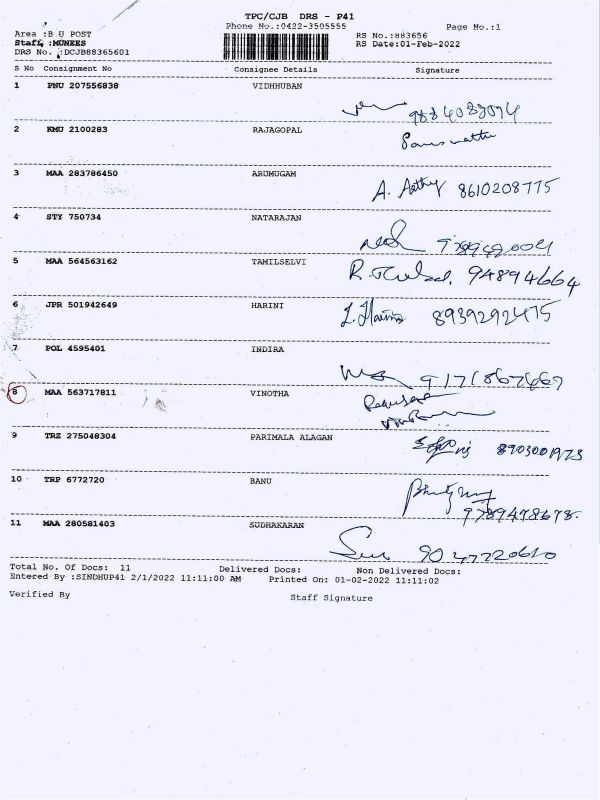 TPC/CJB DRS - P41
Phone No.:0422-3505555
Page No.:1
Area :B U POST
Staff :MUNEES
DRS No. :DCJB88365601
RS No.:883656
RS Date:01-Feb-2022
S No Consignment No Consignee Details Signature
1 PNU 207556838 VIDHHUBAN
2 KMU 2100283 RAJAGOPAL
3 MAA 283786450 ARUMUGAM
A. Aathy 8610208775
4 STY 750734 NATARAJAN
5 MAA 564563162 TAMILSELVI
94894664
6 JPR 501942649 HARINI
8939292475
7 POL 4595401 INDIRA
8 MAA 563717811 VINOTHA
9 TRZ 275048304 PARIMALA ALAGAN
8903001973
10 TRP 6772720 BANU
9789478678
11 MAA 280581403 SUDHAKARAN
Total No. Of Docs: 11 Delivered Docs: Non Delivered Docs:
Entered By :SINDHUP41 2/1/2022 11:11:00 AM Printed On: 01-02-2022 11:11:02
Verified By Staff Signature